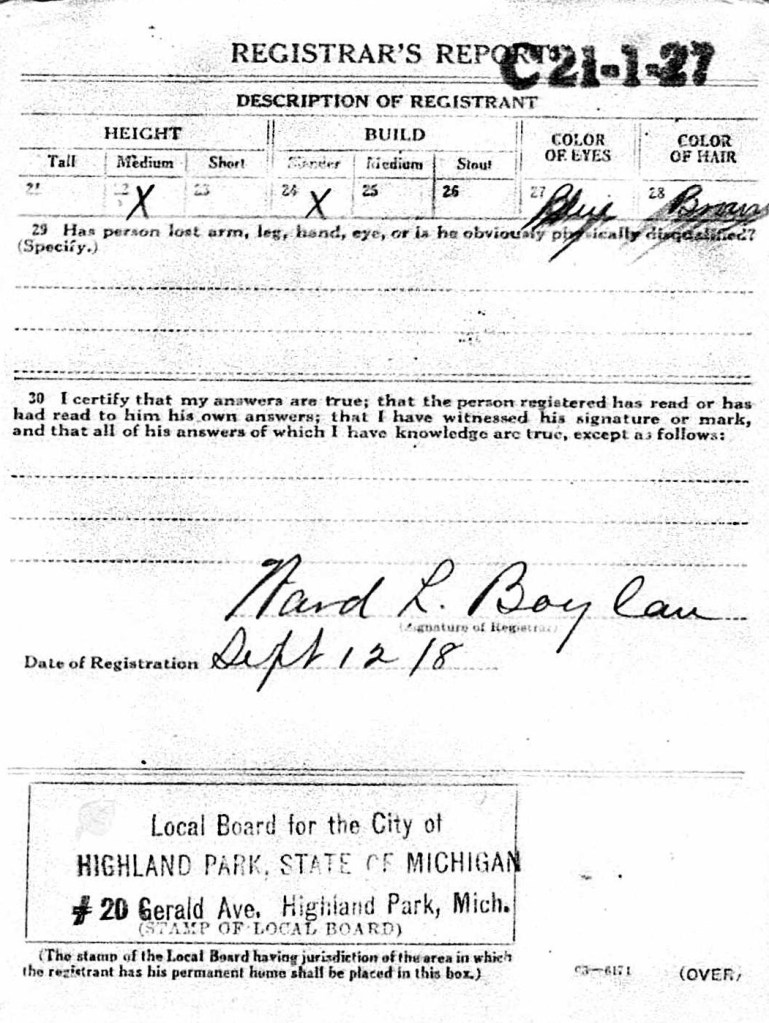 REGISTRAR'S REPORT
C 21-1-27
DESCRIPTION OF REGISTRANT
HEIGHT BUILD COLOR OF EYES COLOR OF HAIR
Tall Medium Short Slender Medium Stout
21 22 X 23 24 X 25 26 27 Blue 28 Brown
29 Has person lost arm, leg, hand, eye, or is he obviously physically disqualified?
(Specify.)
30 I certify that my answers are true; that the person registered has read or has
had read to him his own answers; that I have witnessed his signature or mark,
and that all of his answers of which I have knowledge are true, except as follows:
Ward L. Boylan
(Signature of Registrar)
Date of Registration Sept 12 18
Local Board for the City of
HIGHLAND PARK, STATE OF MICHIGAN
# 20 Gerald Ave. Highland Park, Mich.
(STAMP OF LOCAL BOARD)
(The stamp of the Local Board having jurisdiction of the area in which
the registrant has his permanent home shall be placed in this box.)
03—6171 (OVER)